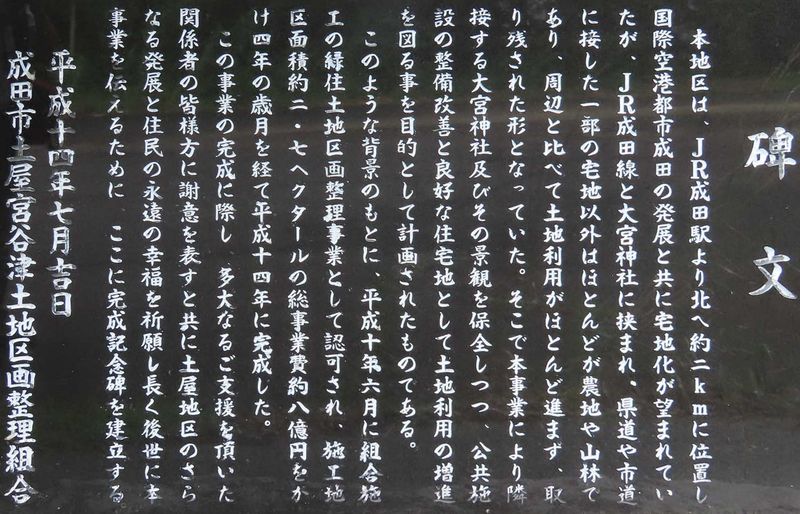 碑文
本地区は、JR成田駅より北へ約二kmに位置し
国際空港都市成田の発展と共に宅地化が望まれてい
たが、JR成田線と大宮神社に挟まれ、県道や市道
に接した一部の宅地以外はほとんどが農地や山林で
あり、周辺と比べて土地利用がほとんど進まず、取
り残された形となっていた。そこで本事業により隣
接する大宮神社及びその景観を保全しつつ、公共施
設の整備改善と良好な住宅地として土地利用の増進
を図る事を目的として計画されたものである。
このような背景のもとに、平成十年六月に組合施
工の緑住土地区画整理事業として認可され、施工地
区面積約二・七ヘクタールの総事業費約八億円をか
け四年の歳月を経て平成十四年に完成した。
この事業の完成に際し 多大なるご支援を頂いた
関係者の皆様方に謝意を表すと共に土屋地区のさら
なる発展と住民の永遠の幸福を祈願し長く後世に本
事業を伝えるために ここに完成記念碑を建立する
平成十四年七月吉日
成田市土屋宮谷津土地区画整理組合